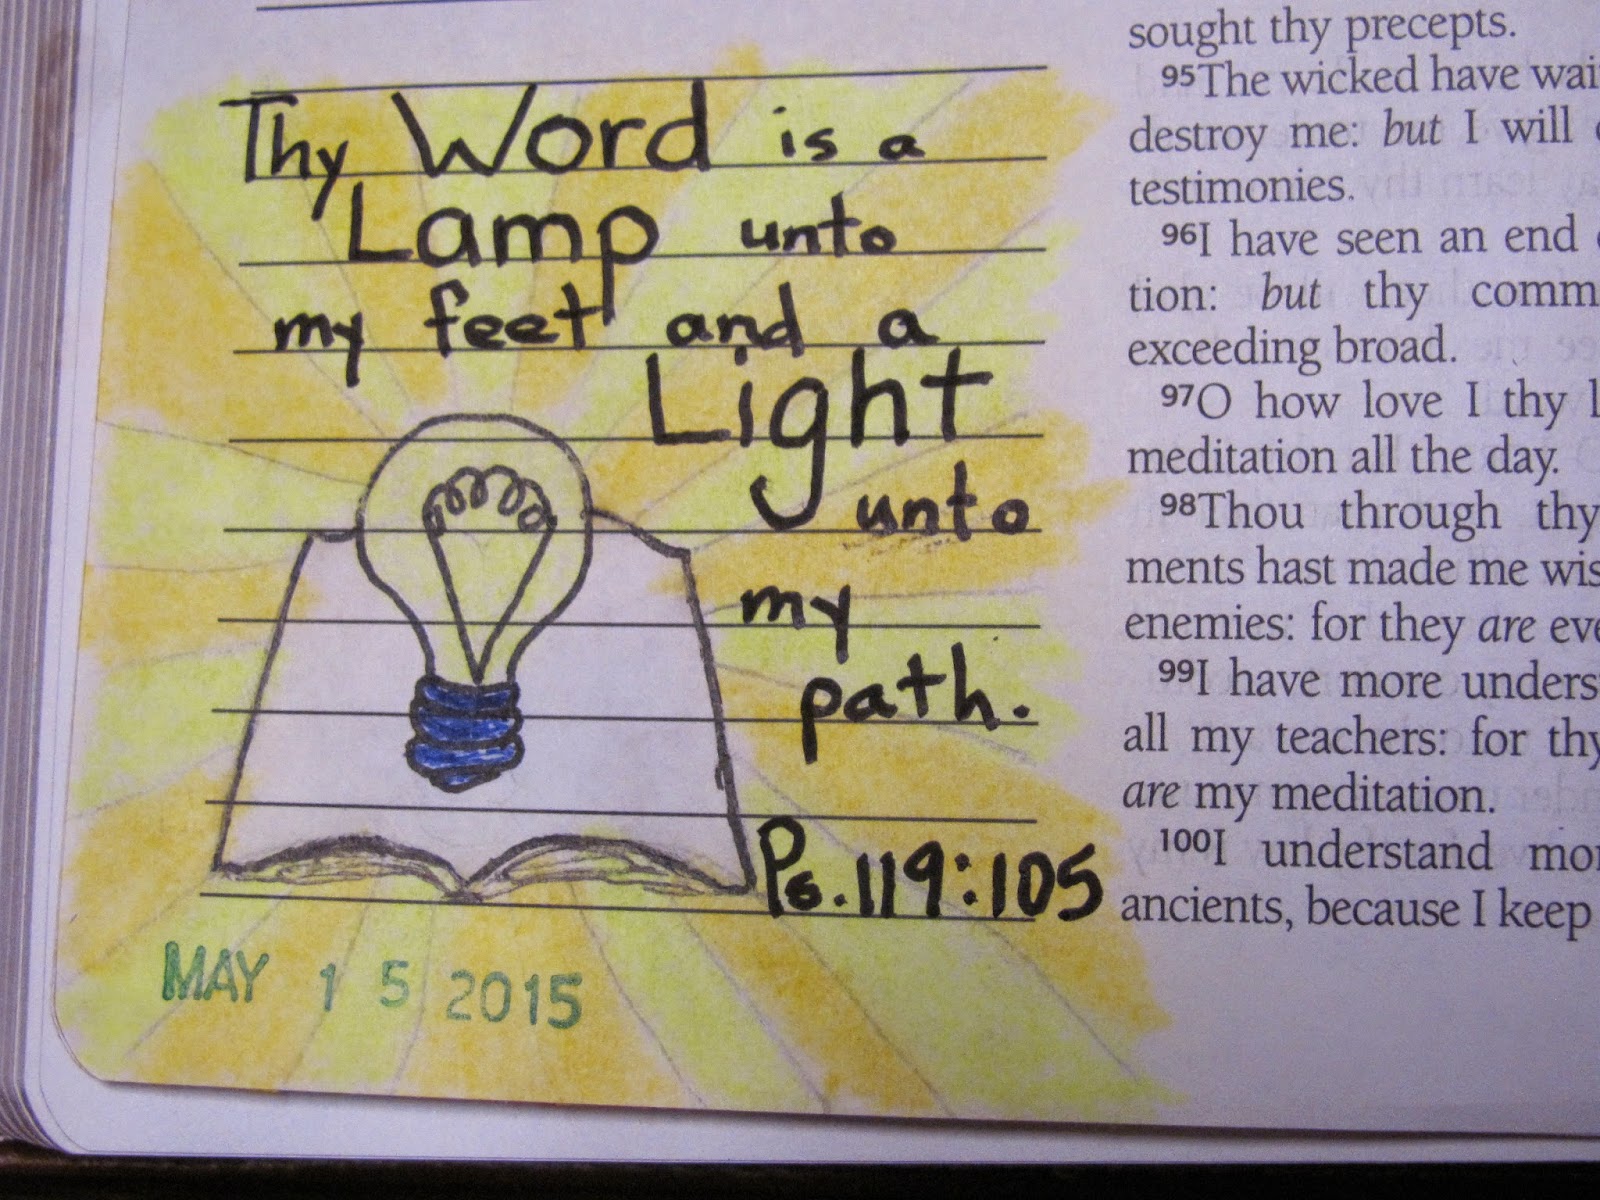 Thy Word is a
Lamp unto
my feet and a
Light
unto
my
path.
Ps. 119:105
MAY 15 2015
sought thy precepts.
95The wicked have
destroy me: but I will
testimonies.
96I have seen an end
tion: but thy
exceeding broad.
97O how love I thy
meditation all the day.
98Thou through thy
ments hast made me
enemies: for they are
99I have more
all my teachers: for
are my meditation.
100I understand
ancients, because I keep